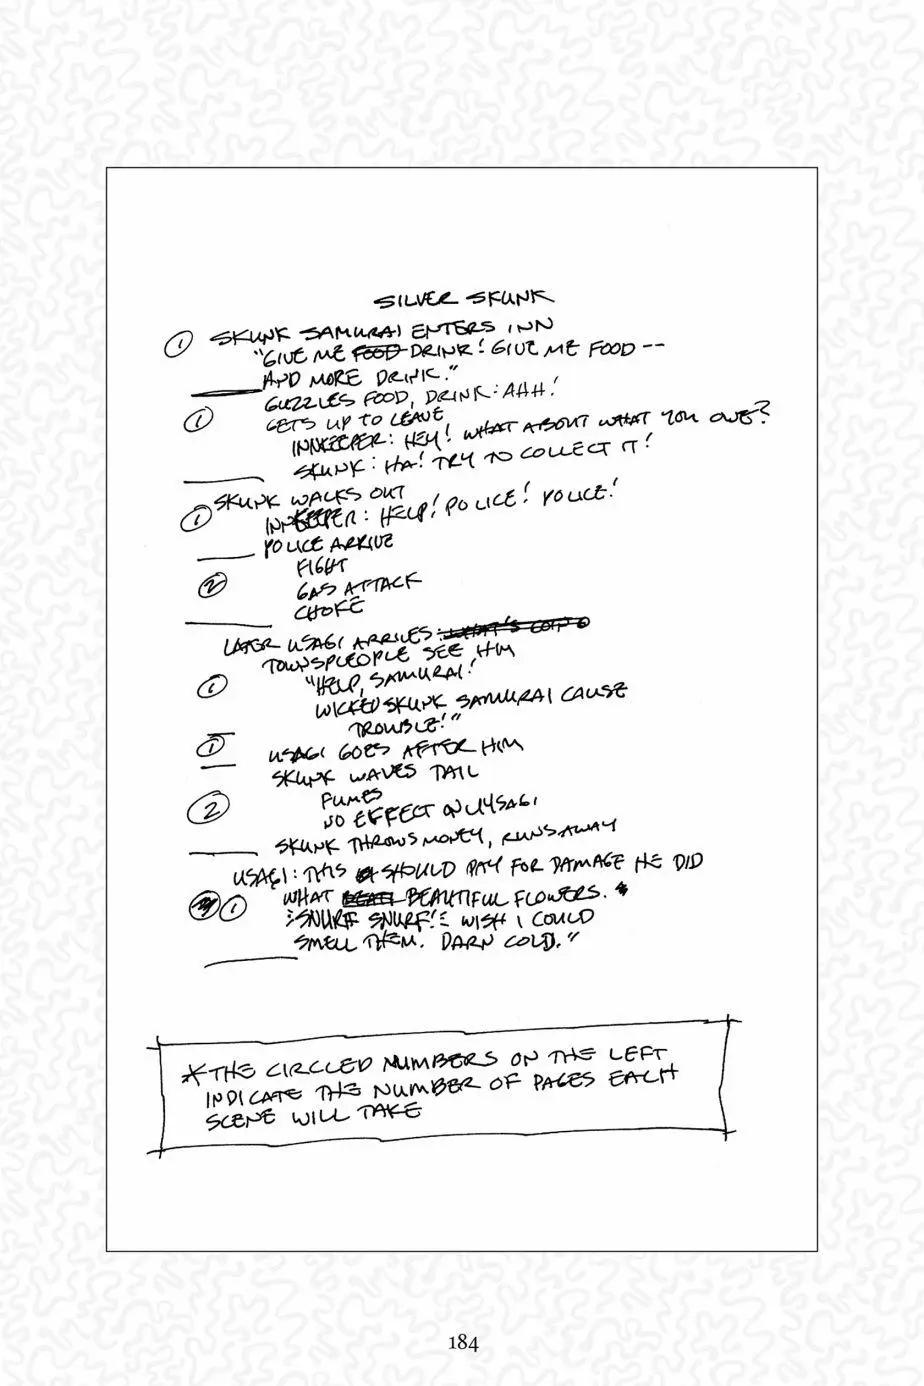 SILVER SKUNK
① SKUNK SAMURAI ENTERS INN
"GIVE ME FOOD DRINK! GIVE ME FOOD --
AND MORE DRINK."
GUZZLES FOOD, DRINK: AHH!
① GETS UP TO LEAVE
INNKEEPER: HEY! WHAT ABOUT WHAT YOU OWE?
SKUNK: HA! TRY TO COLLECT IT!
SKUNK WALKS OUT
① INNKEEPER: HELP! POLICE! POLICE!
POLICE ARRIVE
FIGHT
② GAS ATTACK
CHOKE
LATER USAGI ARRIVES:
TOWNSPEOPLE SEE HIM
① "HELP, SAMURAI!
WICKED SKUNK SAMURAI CAUSE
TROUBLE!"
① USAGI GOES AFTER HIM
SKUNK WAVES TAIL
② FUMES
NO EFFECT ON USAGI
SKUNK THROWS MONEY, RUNS AWAY
USAGI: THIS SHOULD PAY FOR DAMAGE HE DID
① WHAT BEAUTIFUL FLOWERS.
SNURF SNURF! WISH I COULD
SMELL THEM. DARN COLD."
*THE CIRCLED NUMBERS ON THE LEFT
INDICATE THE NUMBER OF PAGES EACH
SCENE WILL TAKE
184